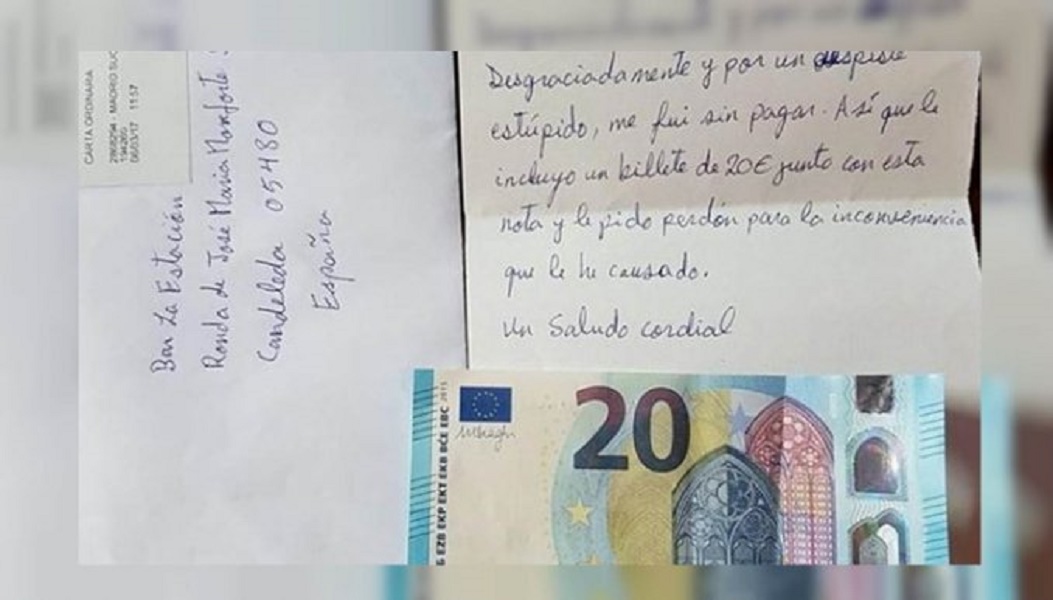 CARTA ORDINARIA
06/03/17 11:57
Bar La Estación
Ronda de José María Monforte
Candeleda 05480
España
Desgraciadamente y por un despiste
estúpido, me fui sin pagar. Así que le
incluyo un billete de 20€ junto con esta
nota y le pido perdón para la inconveniencia
que le he causado.
Un Saludo cordial
EZB EKP EKT EKB BCE EBC 2015
20